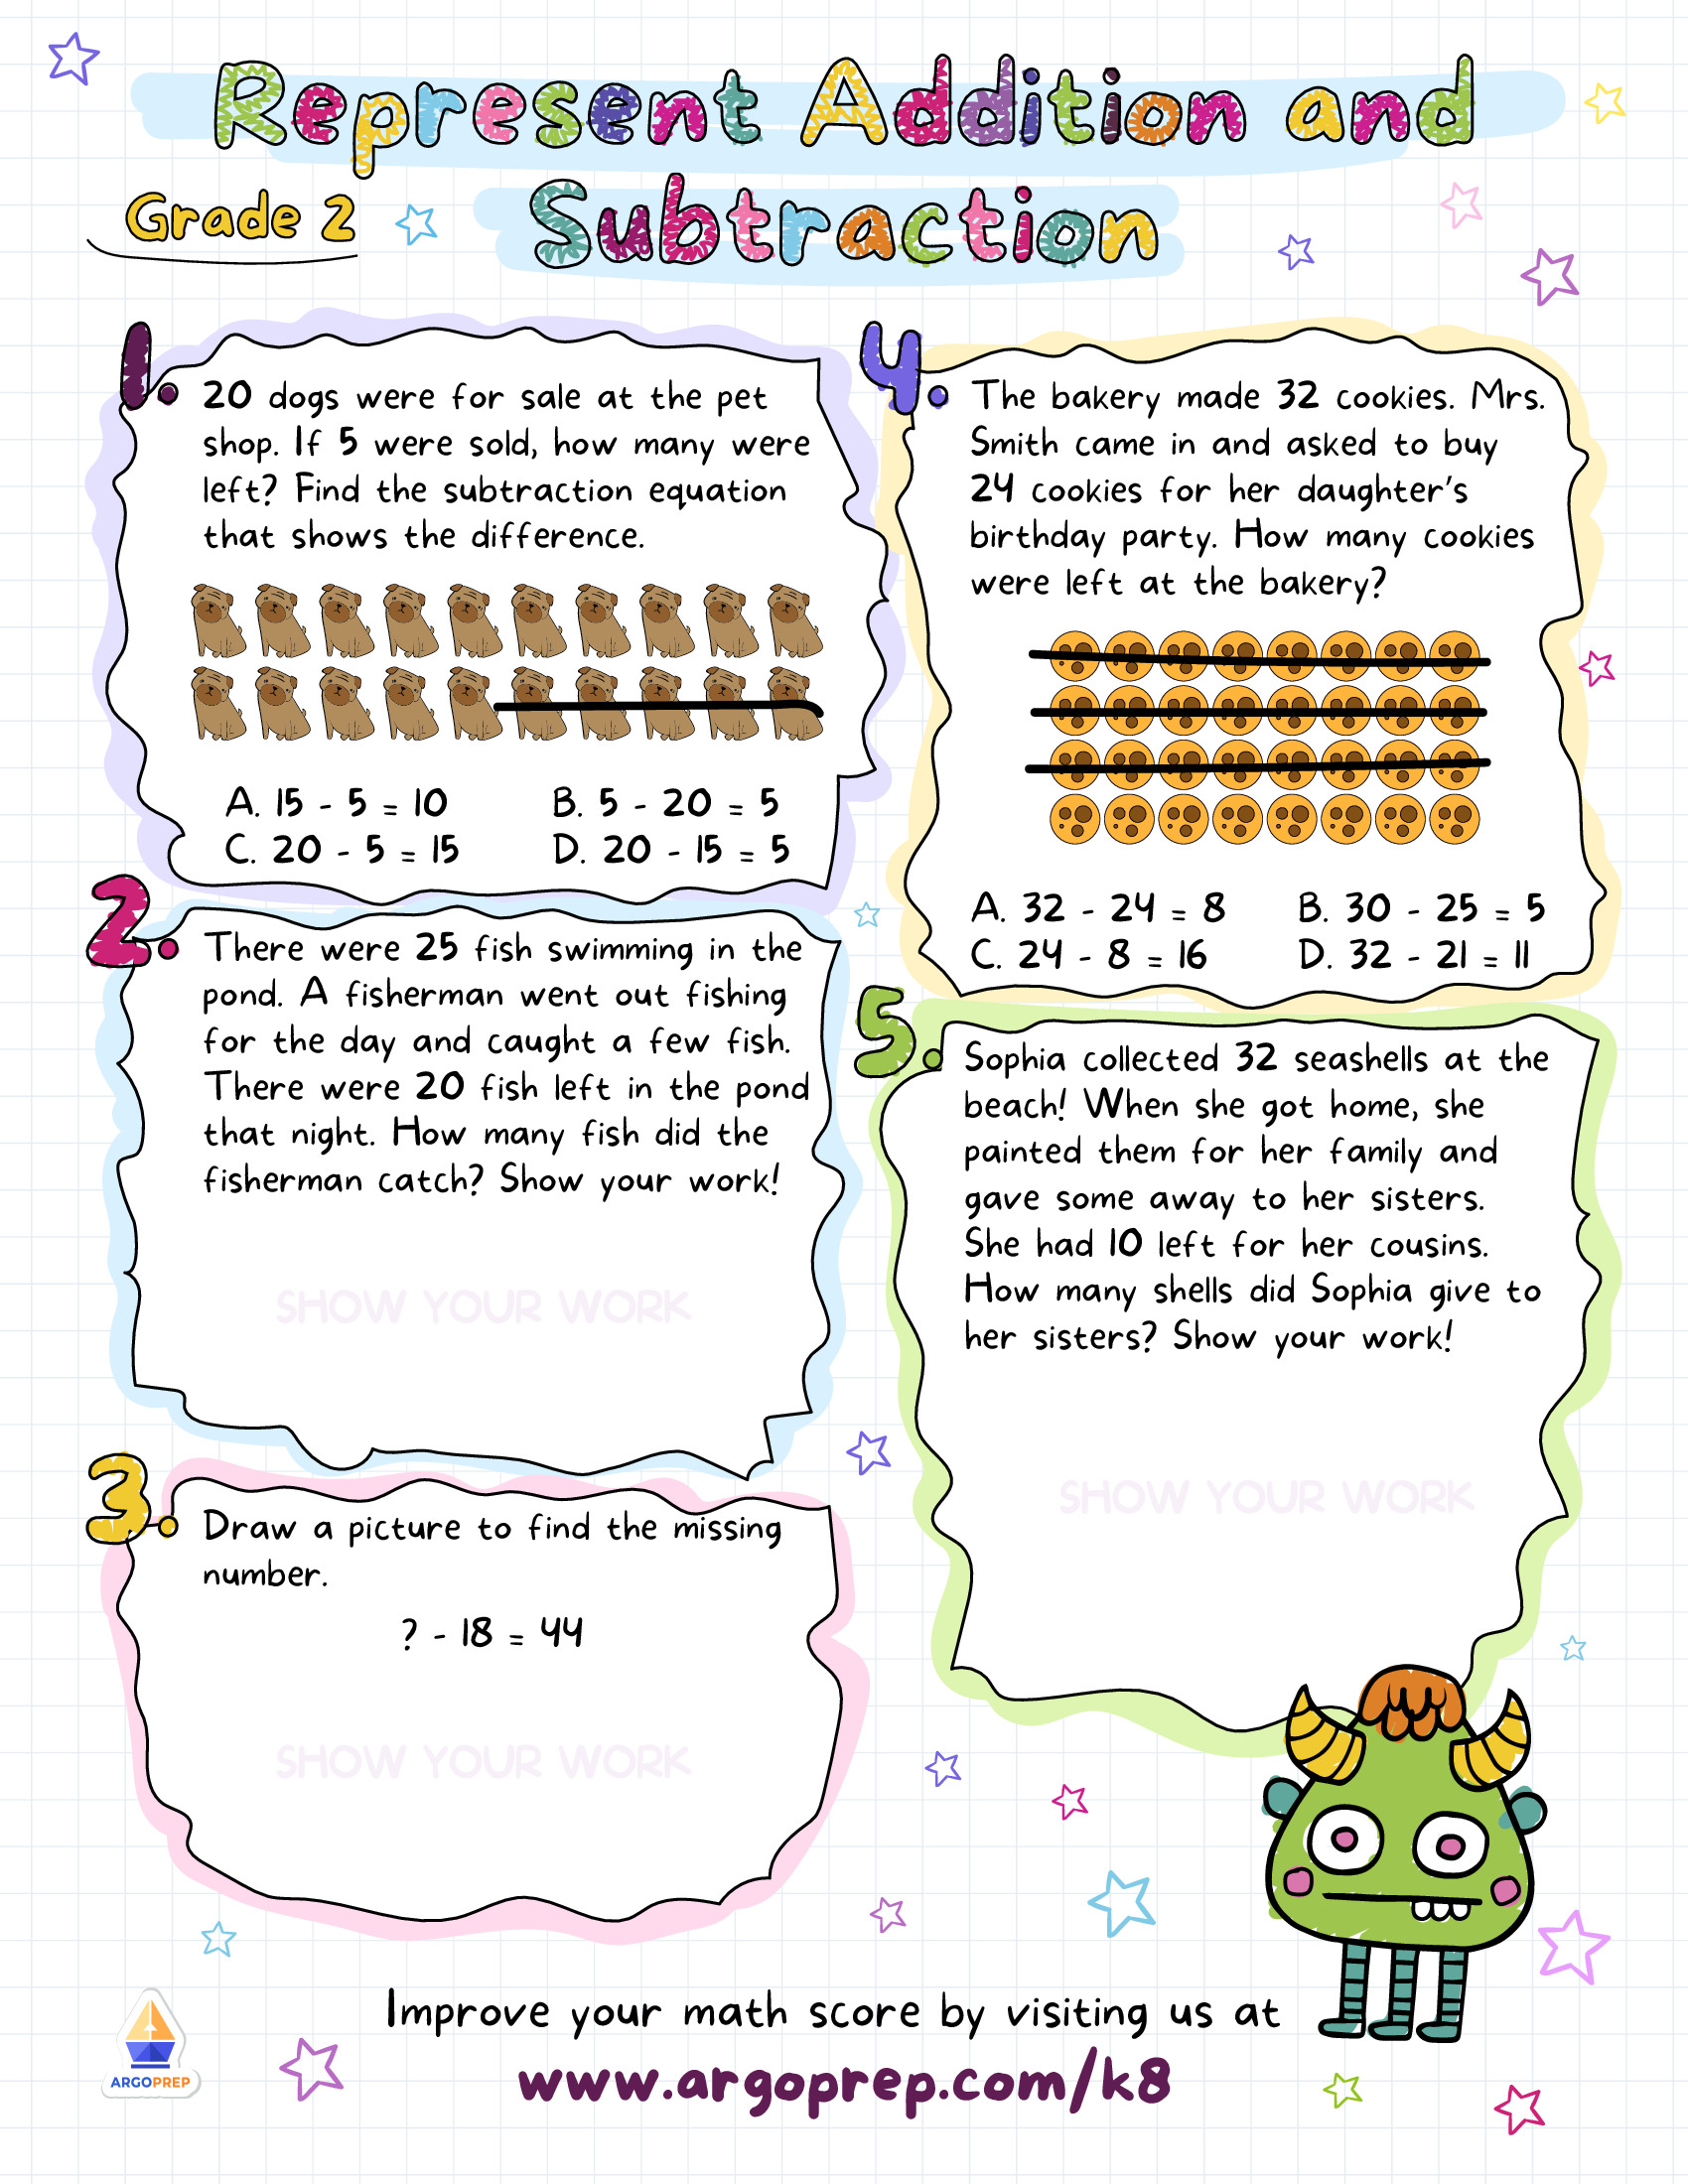 Represent Addition and
Subtraction
Grade 2
1.
20 dogs were for sale at the pet
shop. If 5 were sold, how many were
left? Find the subtraction equation
that shows the difference.
A. 15 - 5 = 10 B. 5 - 20 = 5
C. 20 - 5 = 15 D. 20 - 15 = 5
2.
There were 25 fish swimming in the
pond. A fisherman went out fishing
for the day and caught a few fish.
There were 20 fish left in the pond
that night. How many fish did the
fisherman catch? Show your work!
SHOW YOUR WORK
3.
Draw a picture to find the missing
number.
? - 18 = 44
SHOW YOUR WORK
4.
The bakery made 32 cookies. Mrs.
Smith came in and asked to buy
24 cookies for her daughter's
birthday party. How many cookies
were left at the bakery?
A. 32 - 24 = 8 B. 30 - 25 = 5
C. 24 - 8 = 16 D. 32 - 21 = 11
5.
Sophia collected 32 seashells at the
beach! When she got home, she
painted them for her family and
gave some away to her sisters.
She had 10 left for her cousins.
How many shells did Sophia give to
her sisters? Show your work!
SHOW YOUR WORK
Improve your math score by visiting us at
www.argoprep.com/k8
ARGOPREP